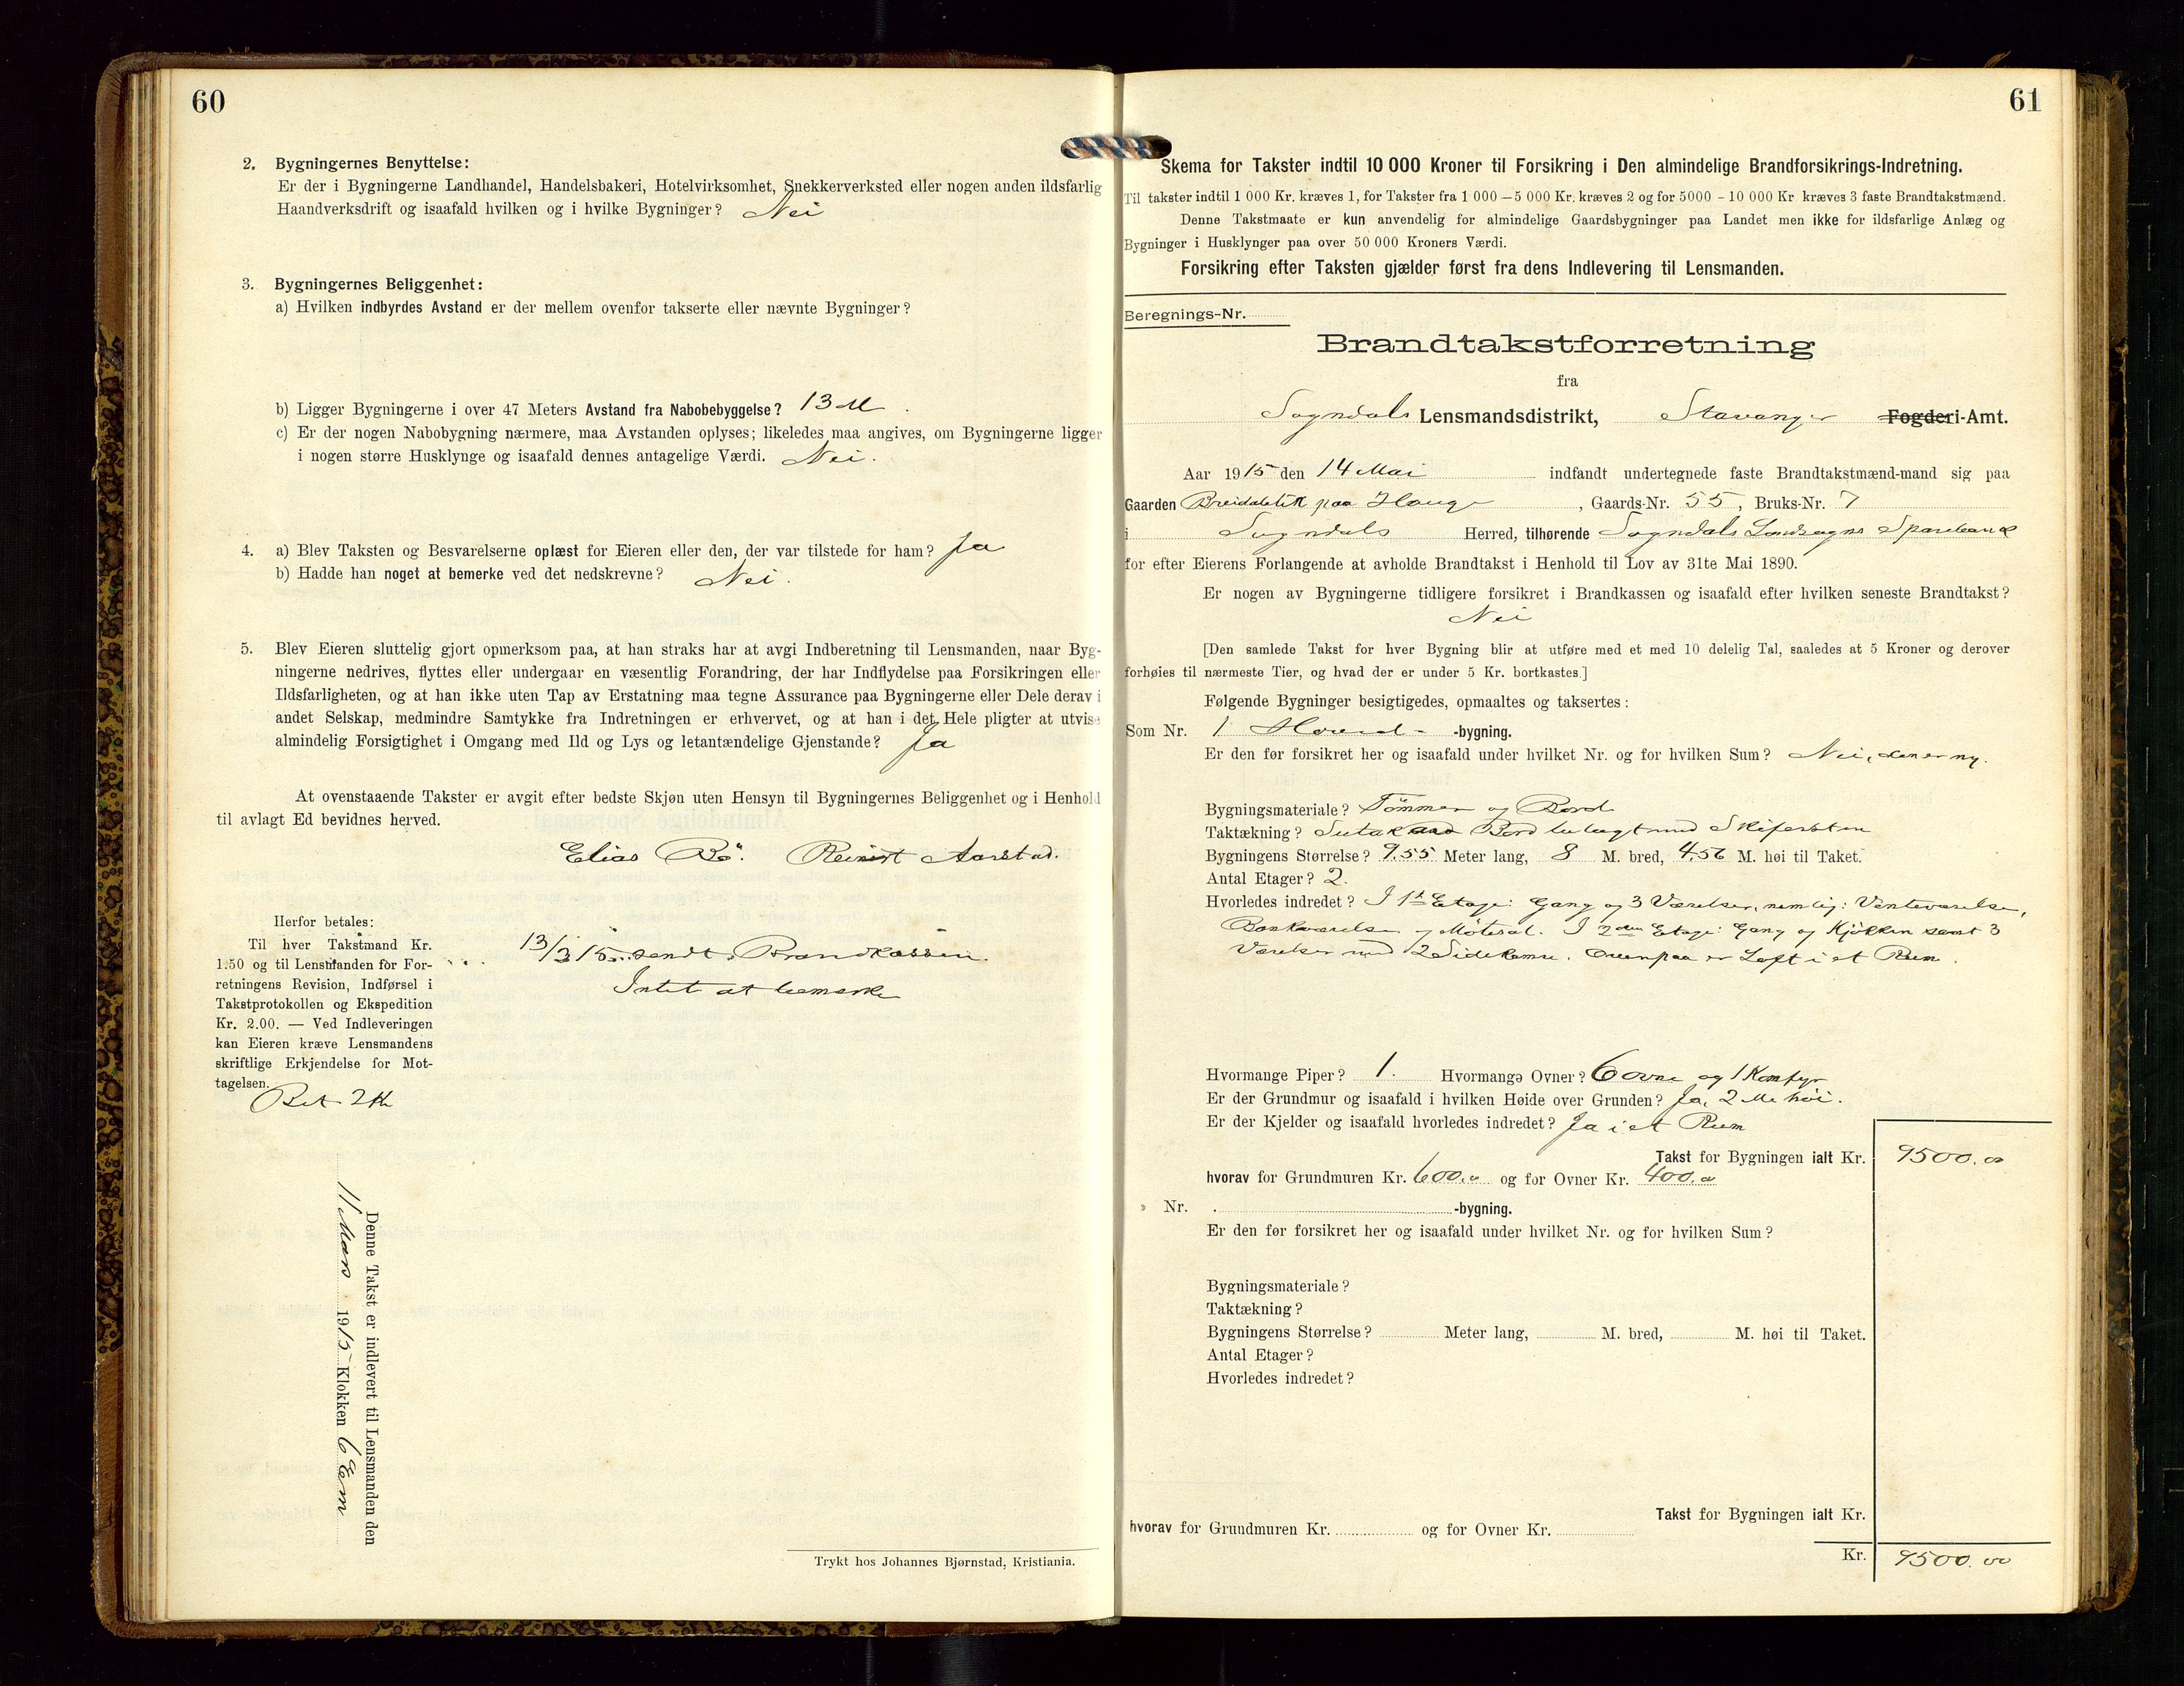 60
2. Bygningernes Benyttelse:
Er der i Bygningerne Landhandel, Handelsbakeri, Hotelvirksomhet, Snekkerverksted eller nogen anden ildsfarlig
Haandverksdrift og isaafald hvilken og i hvilke Bygninger? Nei
3. Bygningernes Beliggenhet:
a) Hvilken indbyrdes Avstand er der mellem ovenfor takserte eller nævnte Bygninger?
b) Ligger Bygningerne i over 47 Meters Avstand fra Nabobebyggelse? 13 M.
c) Er der nogen Nabobygning nærmere, maa Avstanden oplyses; likeledes maa angives, om Bygningerne ligger
i nogen større Husklynge og isaafald dennes antagelige Værdi. Nei.
4. a) Blev Taksten og Besvarelserne oplæst for Eieren eller den, der var tilstede for ham? Ja
b) Hadde han noget at bemerke ved det nedskrevne? Nei.
5. Blev Eieren sluttelig gjort opmerksom paa, at han straks har at avgi Indberetning til Lensmanden, naar Byg-
ningerne nedrives, flyttes eller undergaar en væsentlig Forandring, der har Indflydelse paa Forsikringen eller
Ildsfarligheten, og at han ikke uten Tap av Erstatning maa tegne Assurance paa Bygningerne eller Dele derav i
andet Selskap, medmindre Samtykke fra Indretningen er erhvervet, og at han i det Hele pligter at utvise
almindelig Forsigtighet i Omgang med Ild og Lys og letantændelige Gjenstande? Ja
At ovenstaaende Takster er avgit efter bedste Skjøn uten Hensyn til Bygningernes Beliggenhet og i Henhold
til avlagt Ed bevidnes herved.
Elias Bö. Reinert Aarstad.
Herfor betales:
Til hver Takstmand Kr.
1.50 og til Lensmanden for For-
retningens Revision, Indførsel i
Takstprotokollen og Ekspedition
Kr. 2.00. — Ved Indleveringen
kan Eieren kræve Lensmandens
skriftlige Erkjendelse for Mot-
tagelsen.
Bet 2 Kr
13/3 15 sendt Brandkassen.
Intet at bemerke
Denne Takst er indlevert til Lensmanden den
11 Mars 1915 Klokken 6 Em
Trykt hos Johannes Bjørnstad, Kristiania.
61
Skema for Takster indtil 10 000 Kroner til Forsikring i Den almindelige Brandforsikrings-Indretning.
Til takster indtil 1 000 Kr. kræves 1, for Takster fra 1 000 — 5 000 Kr. kræves 2 og for 5000 - 10 000 Kr. kræves 3 faste Brandtakstmænd.
Denne Takstmaate er kun anvendelig for almindelige Gaardsbygninger paa Landet men ikke for ildsfarlige Anlæg og
Bygninger i Husklynger paa over 50 000 Kroners Værdi.
Forsikring efter Taksten gjælder først fra dens Indlevering til Lensmanden.
Beregnings-Nr.
Brandtakstforretning
fra
Sogndals Lensmandsdistrikt, Stavanger Fogderi-Amt.
Aar 1915 den 14 Mai indfandt undertegnede faste Brandtakstmænd-mand sig paa
Gaarden Breidablik paa Hauge, Gaards-Nr. 55, Bruks-Nr. 7
i Sogndals Herred, tilhørende Sogndals Landsogns Sparebank
for efter Eierens Forlangende at avholde Brandtakst i Henhold til Lov av 31te Mai 1890.
Er nogen av Bygningerne tidligere forsikret i Brandkassen og isaafald efter hvilken seneste Brandtakst?
Nei
[Den samlede Takst for hver Bygning blir at utføre med et med 10 delelig Tal, saaledes at 5 Kroner og derover
forhøies til nærmeste Tier, og hvad der er under 5 Kr. bortkastes.]
Følgende Bygninger besigtigedes, opmaaltes og taksertes:
Som Nr. 1 Hoved- -bygning.
Er den før forsikret her og isaafald under hvilket Nr. og for hvilken Sum? Nei, den er ny.
Bygningsmateriale? Tömmer og Bord
Taktækning? Sutak Bord belagt med Skifersten
Bygningens Størrelse? 9.55 Meter lang, 8 M. bred, 4.56 M. høi til Taket.
Antal Etager? 2.
Hvorledes indret? I 1ste Etage: Gang og 3 Værelser, nemlig: Venteværelse,
Bankværelse og Mötesal. I 2den Etage: Gang og Kjökken samt 3
Værelser med 2 Sidekamre. Ovenpaa er Loft i et Rum.
Hvormange Piper? 1. Hvormange Ovner? 6 ovne og 1 Komfyr
Er der Grundmur og isaafald i hvilken Høide over Grunden? Ja, 2 M. høi.
Er der Kjelder og isaafald hvorledes indredet? Ja i et Rum
Takst for Bygningen ialt Kr. 9500.00
hvorav for Grundmuren Kr. 600.00 og for Ovner Kr. 400.00
» Nr. -bygning.
Er den før forsikret her og isaafald under hvilket Nr. og for hvilken Sum?
Bygningsmateriale?
Taktækning?
Bygningens Størrelse? Meter lang, M. bred, M. høi til Taket.
Antal Etager?
Hvorledes indredet?
Takst for Bygningen ialt Kr.
hvorav for Grundmuren Kr. og for Ovner Kr.
Kr. 9500.00